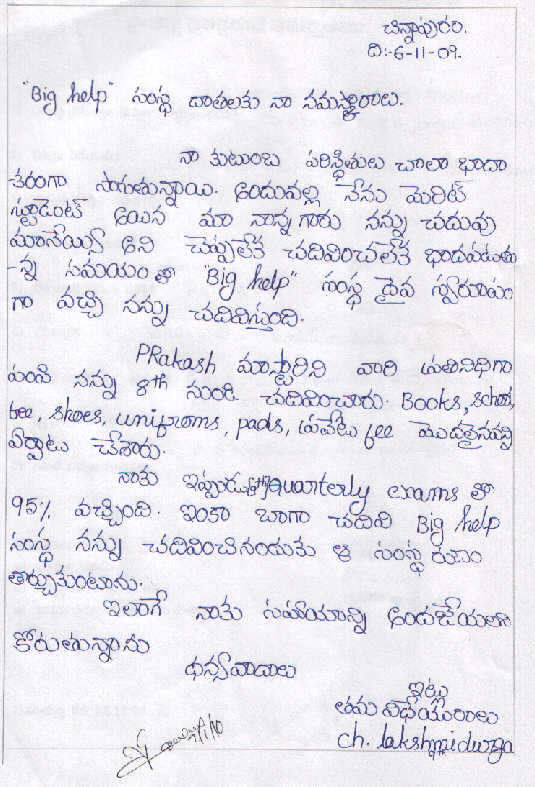 చిన్నాపురం.
ది:-6-11-09.
"Big help" సంస్థ దాతలకు నా నమస్కారాలు.
నా కుటుంబ పరిస్థితులు చాలా బాదా
కరంగా సాగుతున్నాయి. అందువల్ల నేను మెరిట్
స్టూడెంట్ అయిన మా నాన్న గారు నన్ను చదువు
మానేయ్యి అని చెప్పలేక చదివించలేక భాదపడుతు
-న్న సమయం తో "Big help" సంస్థ దైవ స్వరూపం
గా వచ్చి నన్ను చదివిస్తుంది.
PRakash మాస్టారిని వారి ప్రతినిధిగా
పంపి నన్ను 8th నుండి చదివించారు. Books, school
fee, shoes, uniproms, pads, ప్రవేటు fee మొదలైనవన్ని
ఏర్పాటు చేశారు.
నాకు ఇప్పుడు quarterly exams తో
95% వచ్చింది. ఇంకా బాగా చదివి Big help
సంస్థ నన్ను చదివించినందుకు ఆ సంస్థ రుణం
తీర్చుకుంటాను.
ఇలాగే నాకు సహాయాన్ని అందచేయలాగ
కోరుతున్నాను
ధన్యవాదాలు
ఇట్లు
తమ విధేయురాలు
ch. lakshmidurga